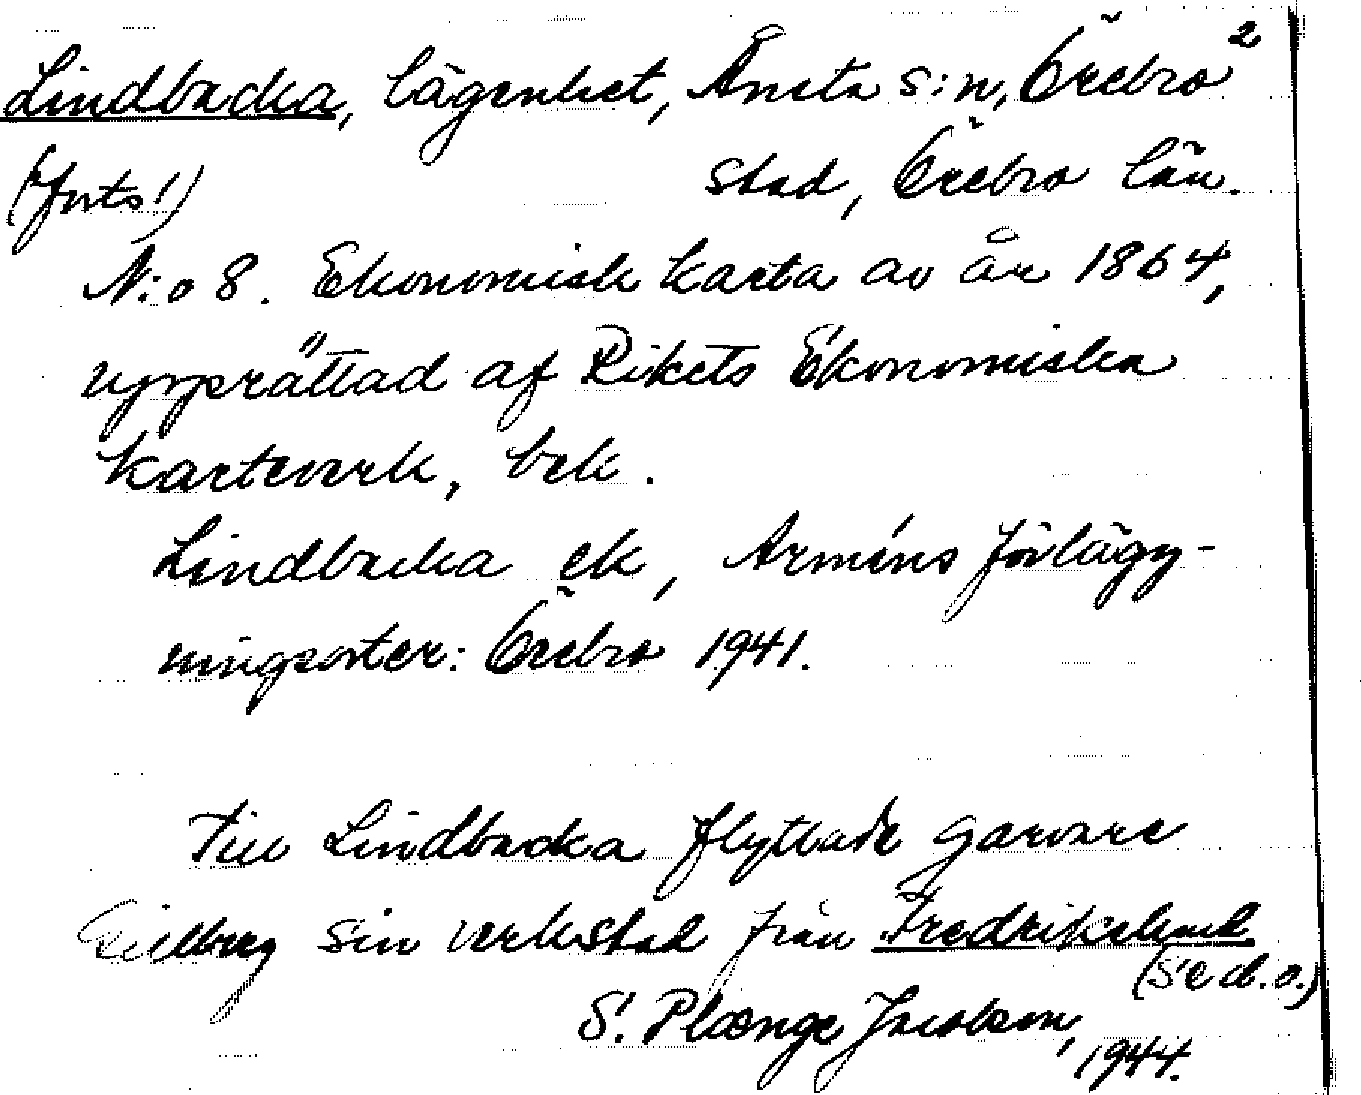 2
Lindbacka, lägenhet, Ånsta s:n, Örebro
(forts!) stad, Örebro län.
N:o 8. Ekonomisk karta av år 1864,
upprättad af Rikets Ekonomiska
Kartverk, bek.
Lindbacka ek, Arméns förlägg-
ningsorter: Örebro 1941.
Till Lindbacka flyttade garvare
sin verkstad från Fredrikslund
(Se d. o.)
S. Plænge Jacobson,
1944.